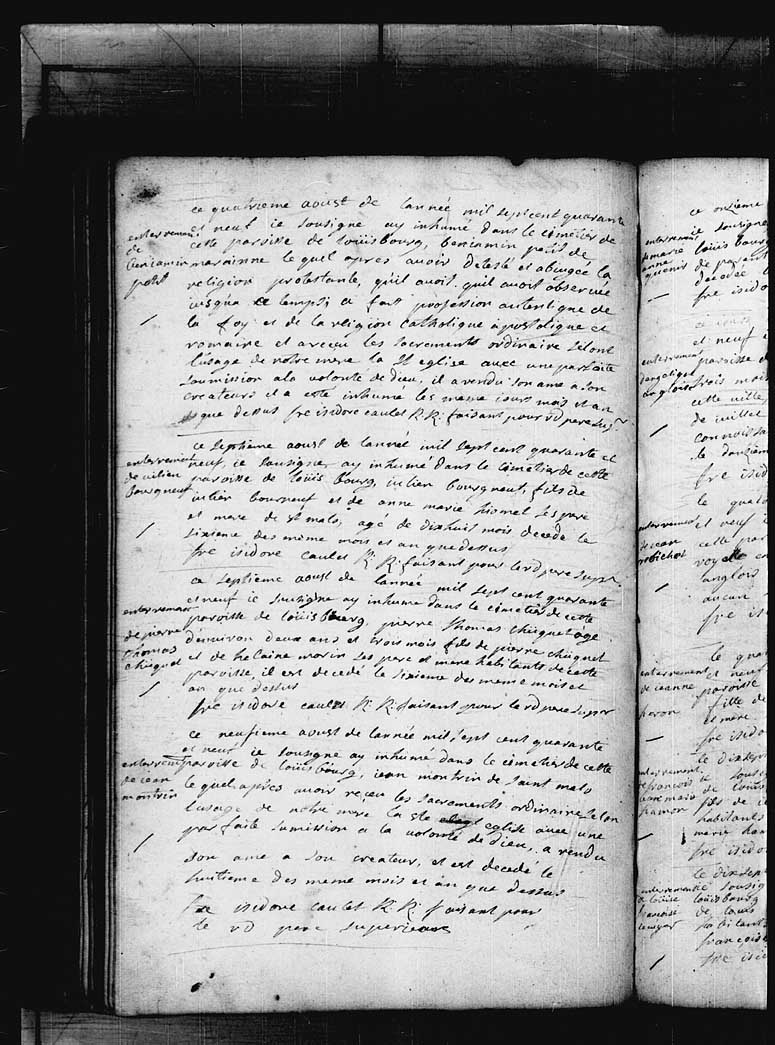 ce quatrieme aoust de lannée mil sept cent quarante
et neuf ie sousigne ay inhumé dans le cimetier de
cette paroisse de loüisbourg, beniamin petit de
le quel apres avoir detesté et abiugée la
religion protestante, quil avoit quil avoit observée
iusqua ce temps, a fait profession autentique de
la foy et de la religion catholique apostolique et
romaine et a receu les sacrements ordinaire selont
lusage de notre mere la st eglise avec une parfaite
soumission a la volonté de dieu, il a rendu son ame a son
createur et a este inhume les meme iours mois et an
que dessus fre isidore caulet R. R. faisant pour rd pere supr
enterrement
de
beniamin
petit
ce septieme aoust de lannee mil sept cent quarante et
neuf, ie sousigne ay inhumé dans le cimetier de cette
paroisse de loüisbourg, iulien bourgneuf, fils de
iulien bourneuf et de anne marie ses pere
et mere de st malo, age de dixhuit mois decede le
sixieme des meme mois et an que dessus
fre isidore caulet R. R. faisant pour le rd pere supr
enterrement
de iulien
bourgneuf
ce septieme aoust de lannée mil sept cent quarante
et neuf ie sousigne ay inhume dans le cimetier de cette
paroisse de loüisbourg, pierre thomas chuquet âge
denviron deux ans et trois mois fils de pierre chuquet
et de helaine morin ses pere et mere habitents de cette
paroisse, il est decedé le sixieme des meme mois et
an que dessus
fre isidore caulet R. R. faisant pour le rd pere super
enterrement
de pierre
thomas
chuquet
ce neufieme aoust de lannée mil sept cent quarante
et neuf ie sousigne ay inhumé dans le cimetier de cette
paroisse de loüisbourg, iean montrin de saint malo
le quel apres avoir reçeu les sacrements ordinaire selon
lusage de notre mere la ste eglise avec une
parfaite sumission a la volonté de dieu, a rendu
son ame a son createur, et est decedé le
huitieme des meme mois et an que dessus
fre isidore caulet R. R. faisant pour
le rd pere superieure
enterrement
de iean
montrin
ce onzieme
ie sousigne
loüisbourg
de
decedée
fre isido
enterrement
de marie
anne
et neuf i
paroisse d
trois mois
cette ville,
de iuillet
le douzieme
fre isido
enterrement
dangelique
anglois
le quato
et neuf
cette par
anglois
aucun
fre isi
enterrement
de iean
le quat
et neuf
paroisse
fille de
et mere
fre isido
enterrement
de ieanne
le dixsept
ie sousi
de loüis
fils de i
habitants
marie
fre isido
enterrement
de françois
le dixsept
ie sousig
loüisbourg
de louis
habitants
françoise
fre isid
enterrement
de loüise
francoise